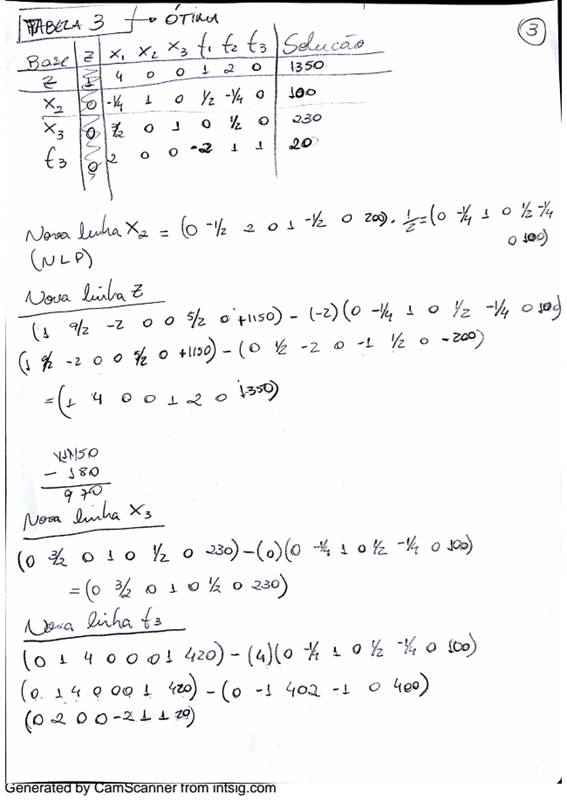 TABELA 3 → ÓTIMA
3
Base Z X₁ X₂ X₃ t₁ t₂ t₃ Solução
Z 1 4 0 0 1 2 0 1350
X₂ 0 -1/4 1 0 1/2 -1/4 0 100
X₃ 0 3/2 0 1 0 1/2 0 230
t₃ 0 2 0 0 -2 1 1 20
Nova linha X₂ = (0 -1/2 2 0 1 -1/2 0 200) . 1/2 = (0 -1/4 1 0 1/2 -1/4
0 100)
(NLP)
Nova linha Z
(1 9/2 -2 0 0 5/2 0 +1150) - (-2)(0 -1/4 1 0 1/2 -1/4 0 100)
(1 9/2 -2 0 0 5/2 0 +1150) - (0 1/2 -2 0 -1 1/2 0 -200)
=(1 4 0 0 1 2 0 1350)
1150
- 180
970
Nova linha X₃
(0 3/2 0 1 0 1/2 0 230) - (0)(0 -1/4 1 0 1/2 -1/4 0 100)
=(0 3/2 0 1 0 1/2 0 230)
Nova linha t₃
(0 1 4 0 0 0 1 420) - (4)(0 -1/4 1 0 1/2 -1/4 0 100)
(0 1 4 0 0 0 1 420) - (0 -1 4 0 2 -1 0 400)
(0 2 0 0 -2 1 1 20)
Generated by CamScanner from intsig.com